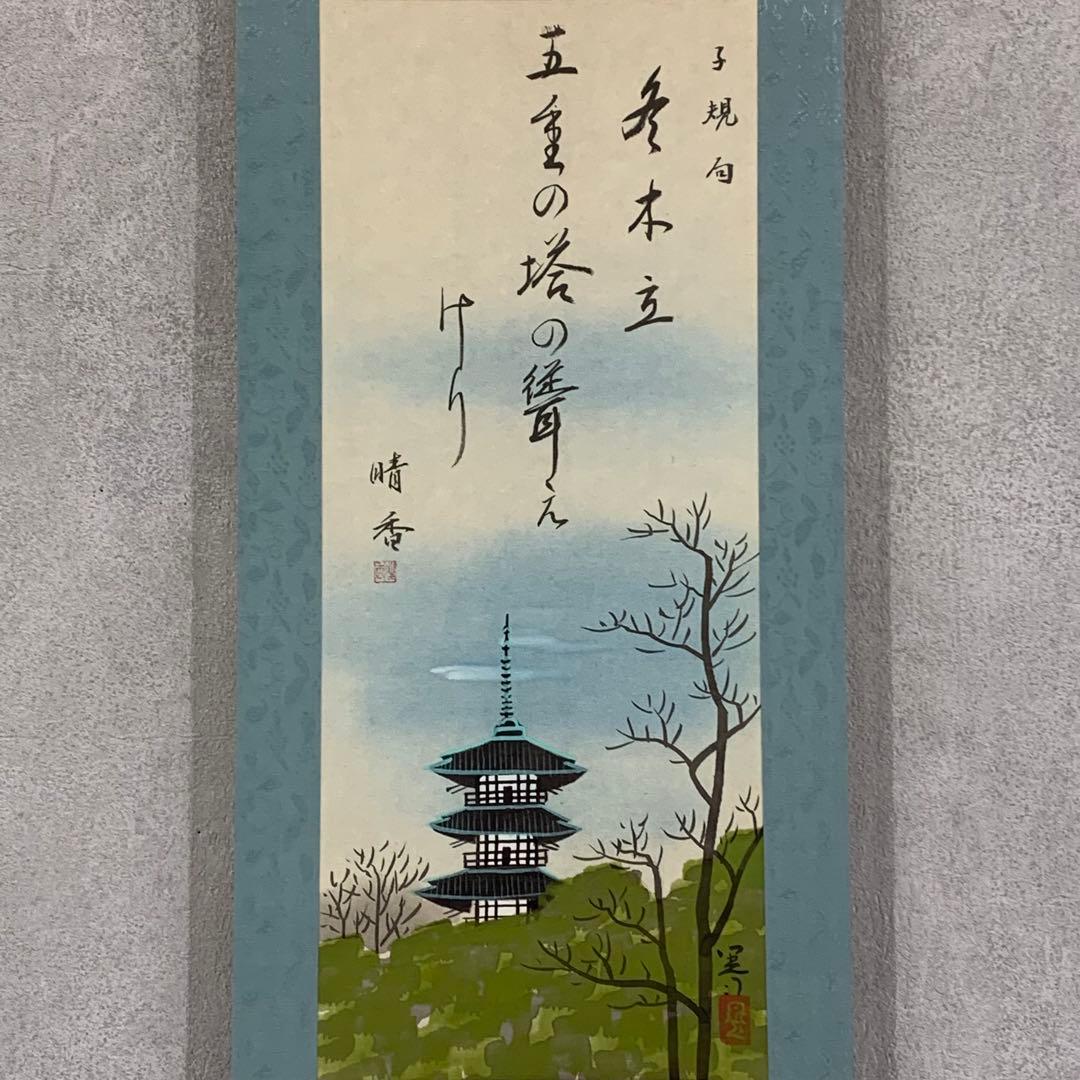 子規句
冬木立
五重の塔の聳え
けり
晴香